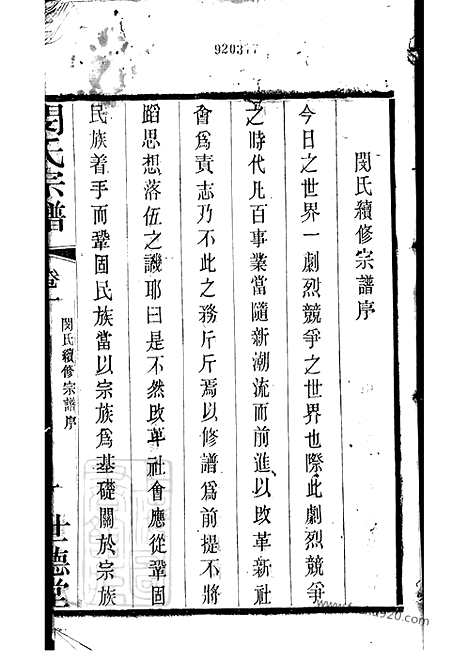 920377
閔氏續修宗譜序
今日之世界一劇烈競爭之世界也際此劇烈競爭
之時代凡百事業當隨新潮流而前進以改革新社
會爲責志乃不此之務斤斤焉以修譜爲前提不將
蹈思想落伍之譏耶曰是不然改革社會應從鞏固
民族着手而鞏固民族當以宗族爲基礎關於宗族
閔氏宗譜
卷一
閔氏續修宗譜序
一
世德堂